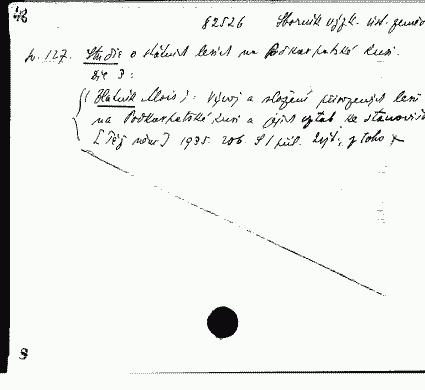 48
82526 Sborník výzk. úst. zeměd
sv. 127. Studie o státních lesích na Podkarpatské Rusi.
Díl 3:
(Zlatník Alois): Vývoj a složení přirozených lesů
na Podkarpatské Rusi a jejich vztah ke stanovišti
1935. 206 S
8